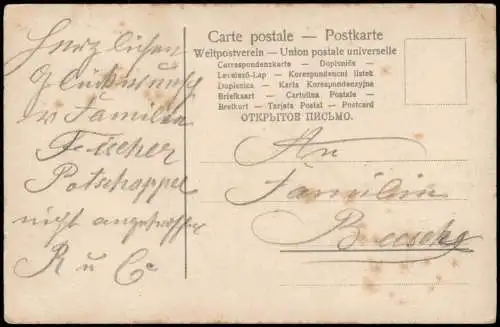 Herzlichen
Glückwunsch
Familie
Fischer
Potschappel
nicht angetroffen
R u C
Carte postale — Postkarte
Weltpostverein — Union postale universelle
Correspondenzkarte — Dopisnica —
Levelező-Lap — Korespondencni listek
Dopisnica — Karta Korespondenzyjna
Briefkaart — Cartolina Postale —
Brefkort — Tarjeta Postal — Postcard
ОТКРЫТОЕ ПИСЬМО.
An
Familie